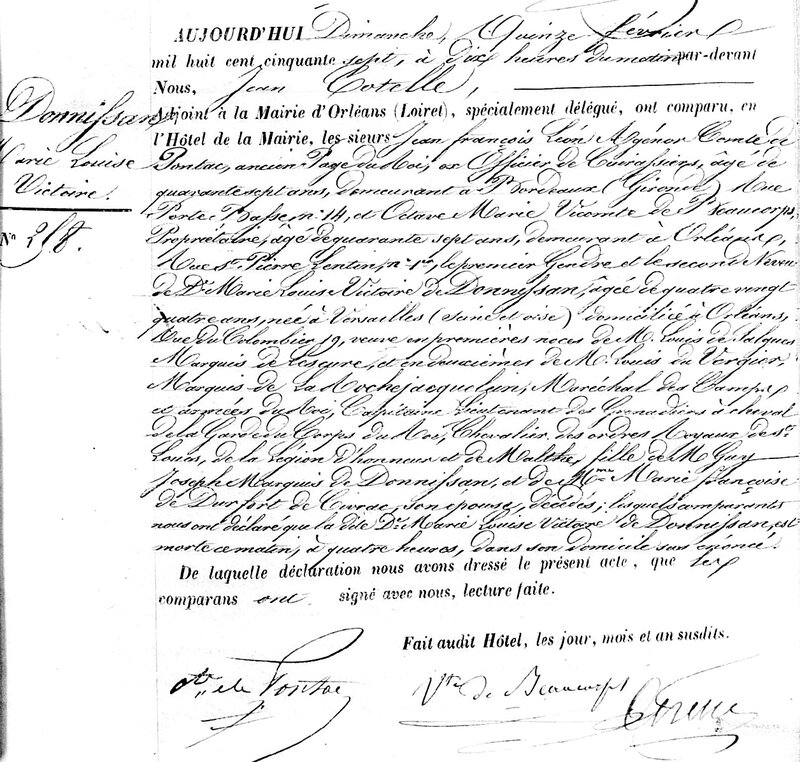 AUJOURD'HUI Dimanche, Quinze février
mil huit cent cinquante sept, à dix heures du matin par-devant
Nous, Jean Cotelle,
Adjoint à la Mairie d'Orléans (Loiret), spécialement délégué, ont comparu, en
l'Hôtel de la Mairie, les sieurs Jean françois Léon Agénor Comte de
Pontac, ancien Page du Roi, ex Officier de Cuirassiers, âgé de
quarante sept ans, demeurant à Bordeaux (Gironde) Rue
Porte Basse, n: 14, et Octave Marie Vicomte de Beaucorps,
Propriétaire, âgé de quarante sept ans, demeurant à Orléans,
Rue St. Pierre Lentin, n: 1er, le premier Gendre et le second Neveu
de De. Marie Louise Victoire de Donnissan, âgée de quatre vingt
quatre ans, née à Versailles (Seine et oise) domiciliée à Orléans,
Rue du Colombier 19, veuve en premières noces de M. Louis de Salques
Marquis de Lescure, et en deuxièmes de M. Louis du Vergier,
Marquis de La Rochejacquelein, Maréchal des Camps
et armées du Roi, Capitaine Lieutenant des Grenadiers à cheval
de la Garde du Corps du Roi, Chevalier des ordres Royaux de St.
Louis, de la Légion d'honneur et de Malthe, fille de M. Guy
Joseph Marquis de Donnissan, et de Mme Marie françoise
de Durfort de Civrac, son épouse, décédés; lesquels comparants
nous ont déclaré que la dite De. Marie Louise Victoire de Donnissan, est
morte ce matin, à quatre heures, dans son domicile sus énoncé.
De laquelle déclaration nous avons dressé le présent acte, que les
comparans ont signé avec nous, lecture faite.
Fait audit Hôtel, les jour, mois et an susdits.
Donnissan
Marie Louise
Victoire.
No 218.
Cte de Pontac
Vte de Beaucorps